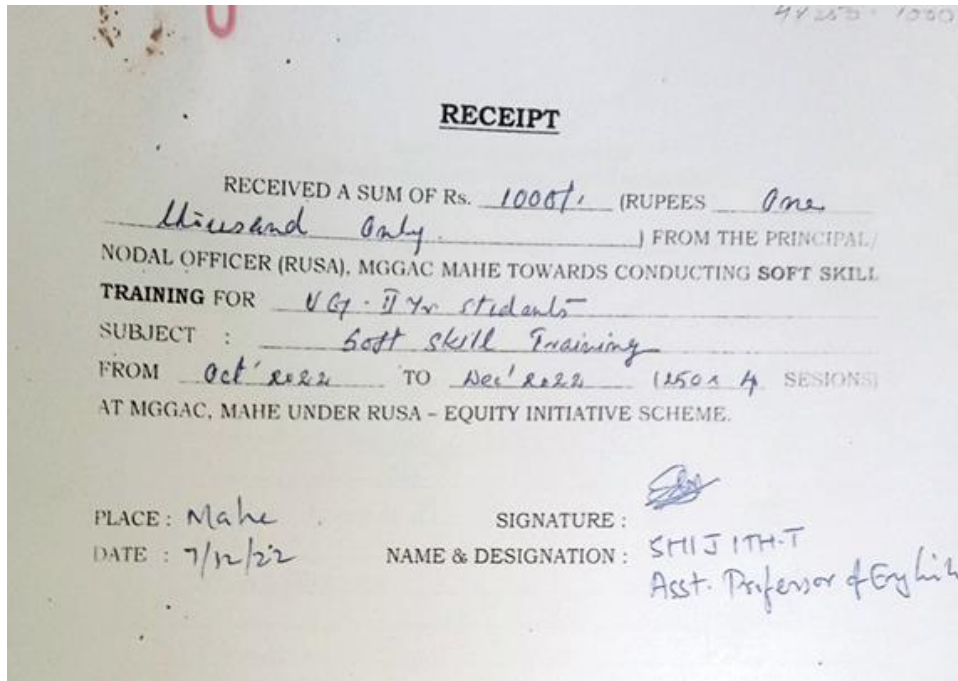 4x250 = 1000
RECEIPT
RECEIVED A SUM OF Rs. 1000/- (RUPEES One
thousand Only ) FROM THE PRINCIPAL/
NODAL OFFICER (RUSA), MGGAC MAHE TOWARDS CONDUCTING SOFT SKILL
TRAINING FOR UG - II Yr students
SUBJECT : Soft Skill Training
FROM Oct' 2022 TO Dec' 2022 (250 x 4 SESIONS)
AT MGGAC, MAHE UNDER RUSA – EQUITY INITIATIVE SCHEME.
PLACE : Mahe SIGNATURE :
DATE : 7/12/22 NAME & DESIGNATION : SHIJITH.T
Asst. Professor of English